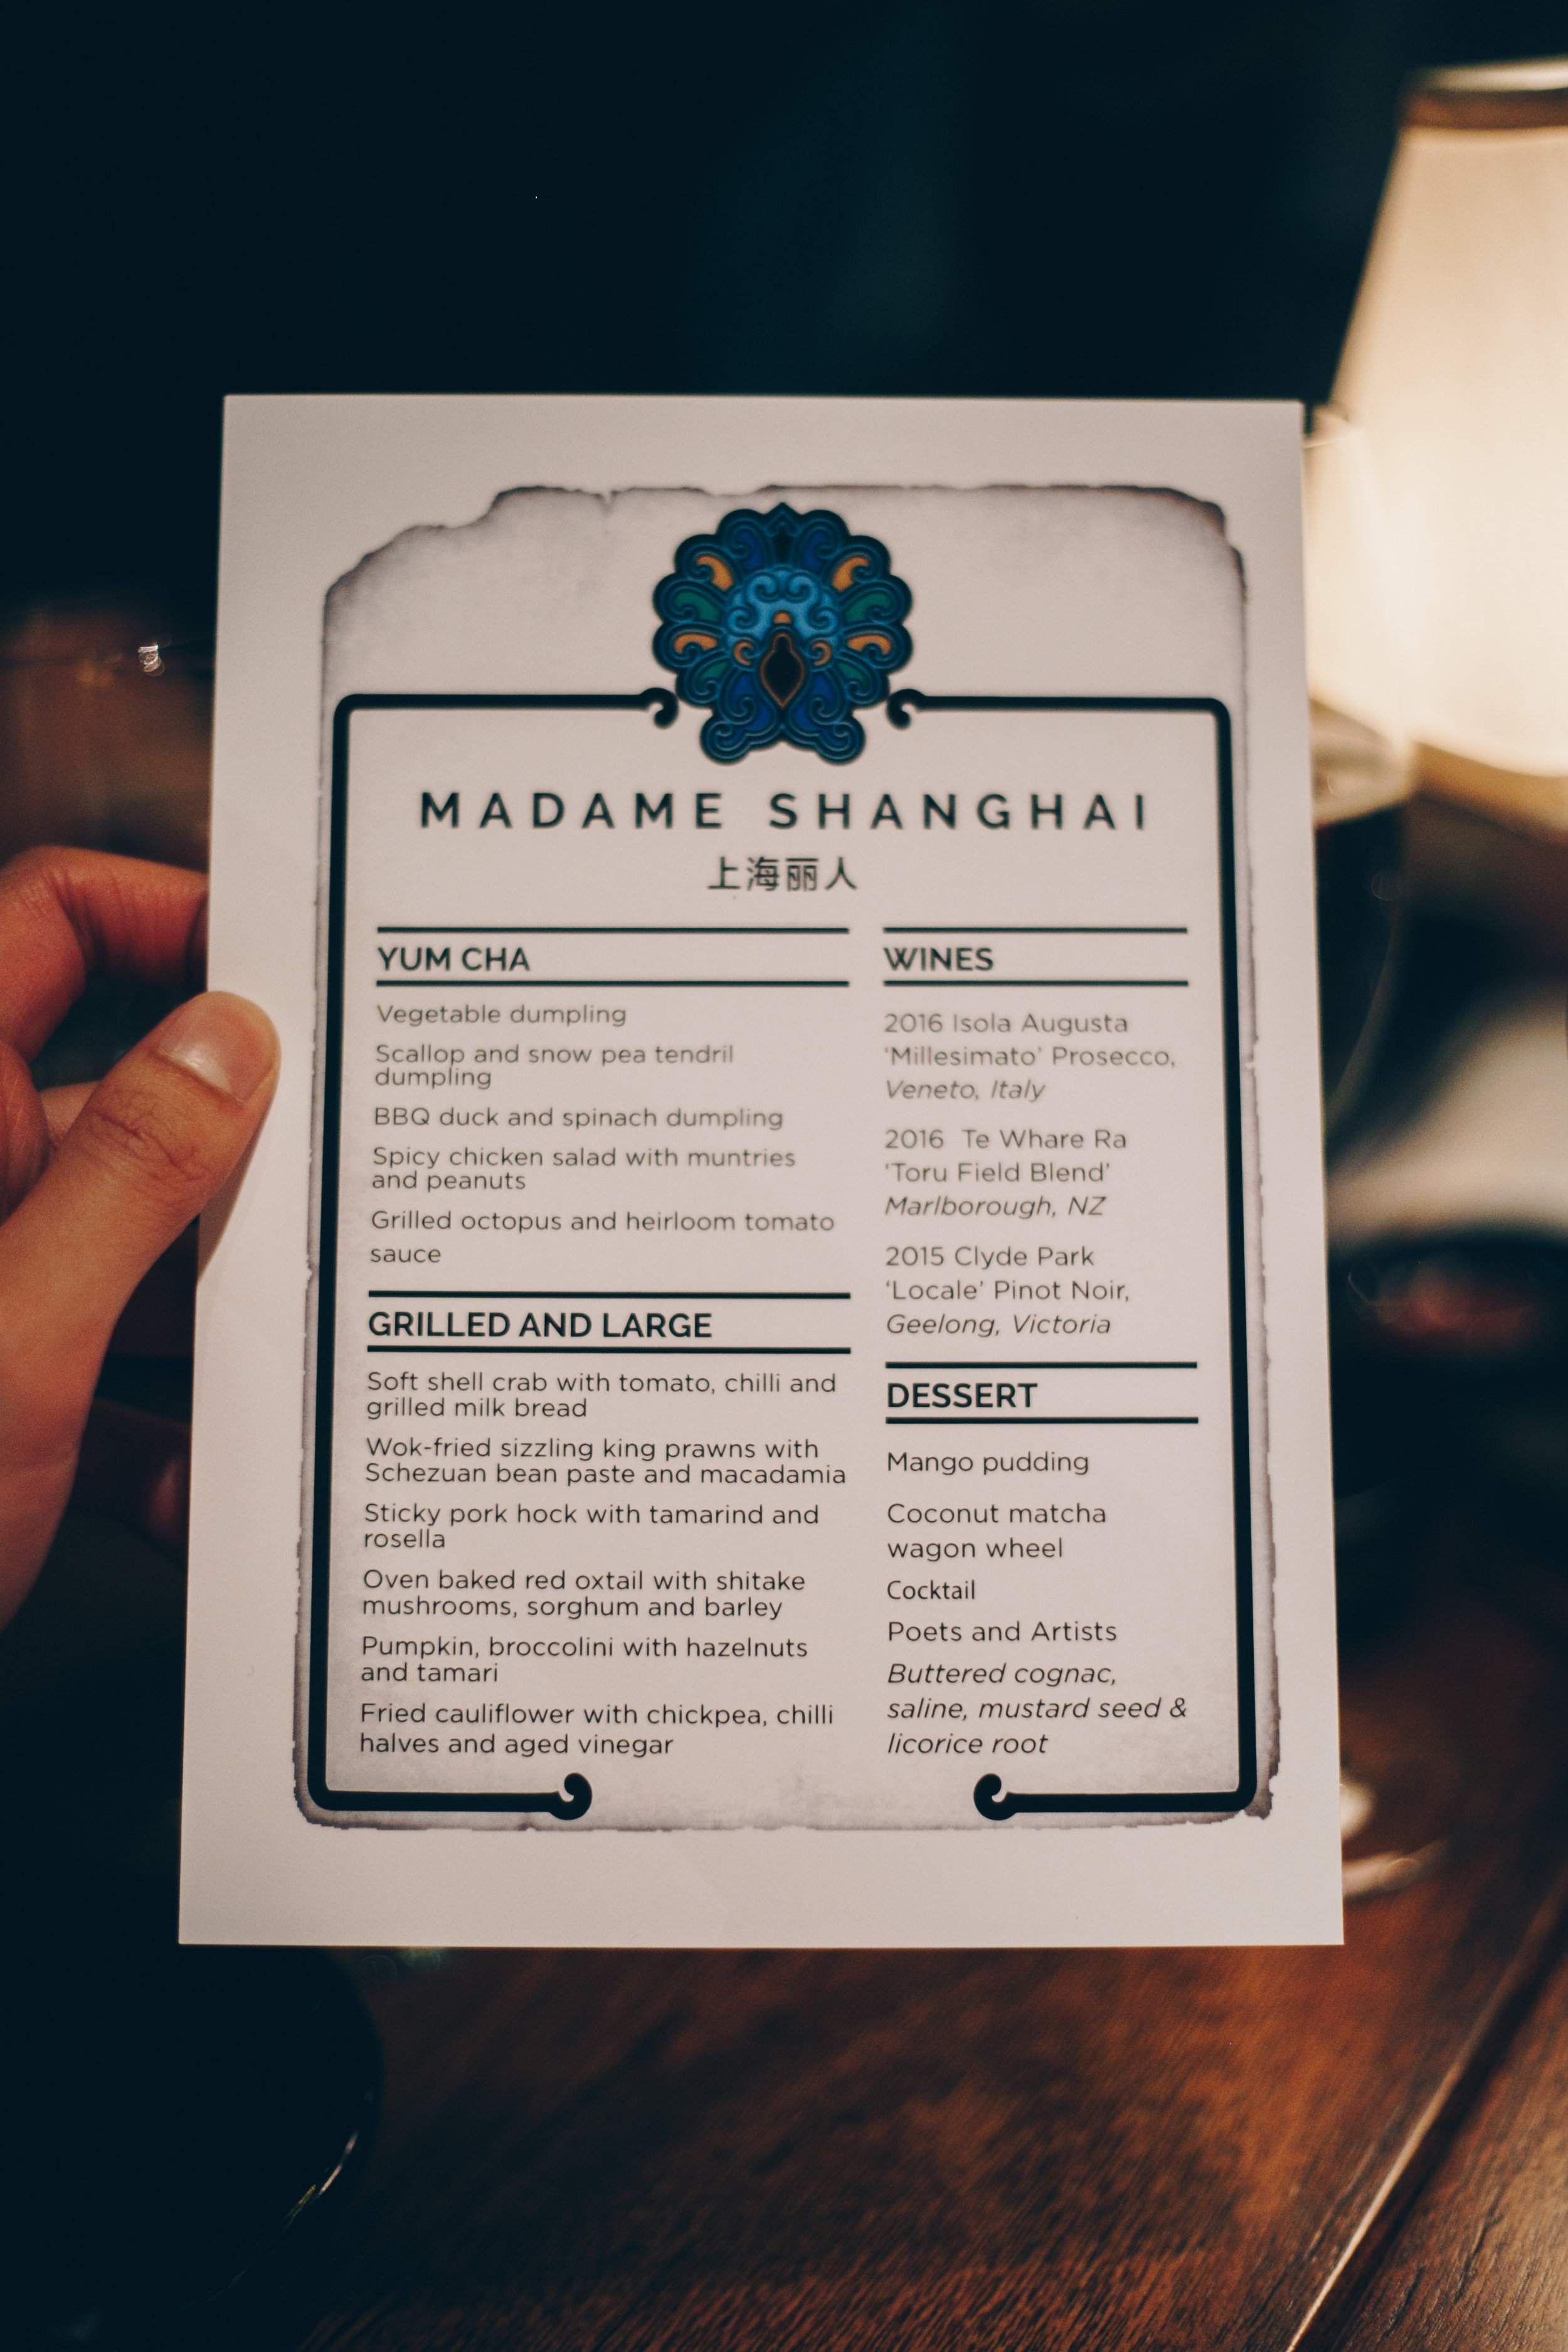 MADAME SHANGHAI
上海丽人
YUM CHA
Vegetable dumpling
Scallop and snow pea tendril
dumpling
BBQ duck and spinach dumpling
Spicy chicken salad with muntries
and peanuts
Grilled octopus and heirloom tomato
sauce
GRILLED AND LARGE
Soft shell crab with tomato, chilli and
grilled milk bread
Wok-fried sizzling king prawns with
Schezuan bean paste and macadamia
Sticky pork hock with tamarind and
rosella
Oven baked red oxtail with shitake
mushrooms, sorghum and barley
Pumpkin, broccolini with hazelnuts
and tamari
Fried cauliflower with chickpea, chilli
halves and aged vinegar
WINES
2016 Isola Augusta
‘Millesimato’ Prosecco,
Veneto, Italy
2016 Te Whare Ra
‘Toru Field Blend’
Marlborough, NZ
2015 Clyde Park
‘Locale’ Pinot Noir,
Geelong, Victoria
DESSERT
Mango pudding
Coconut matcha
wagon wheel
Cocktail
Poets and Artists
Buttered cognac,
saline, mustard seed &
licorice root